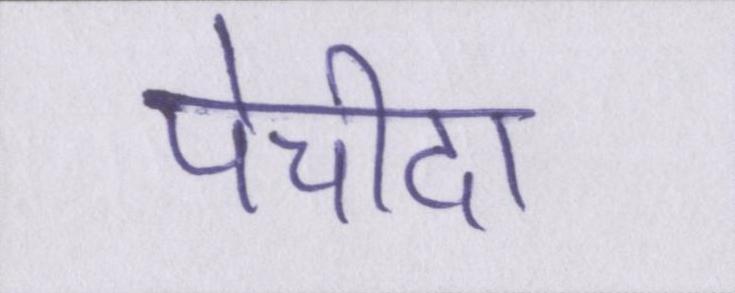 पेचीदा